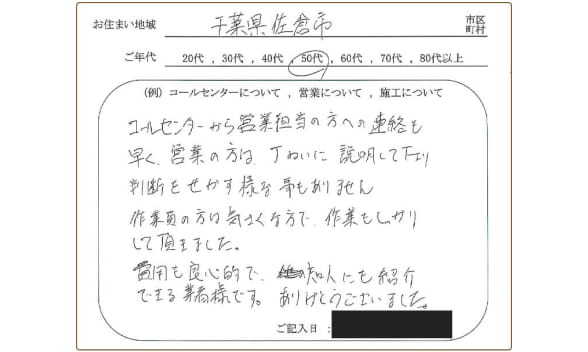 お住まい地域 千葉県佐倉市 市区町村
ご年代 20代 , 30代 , 40代 , 50代 , 60代 , 70代 , 80代以上
（例）コールセンターについて , 営業について , 施工について
コールセンターから営業担当の方への連絡も
早く、営業の方は、丁ねいに説明して下さり
判断をせかす様な事もありません
作業員の方は気さくな方で、作業もしっかり
して頂きました。
費用も良心的で、知人にも紹介
できる業者様です。ありがとうございました。
ご記入日：